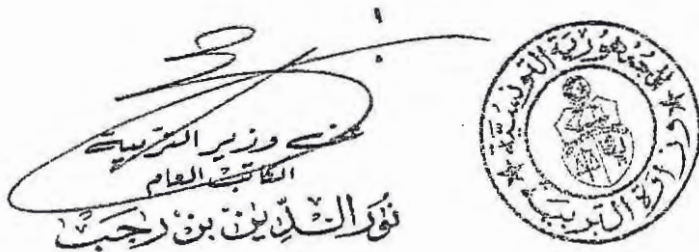 عن وزير التربية
الكاتب العام
نور الدين بن رجب
الجمهورية التونسية
وزارة التربية